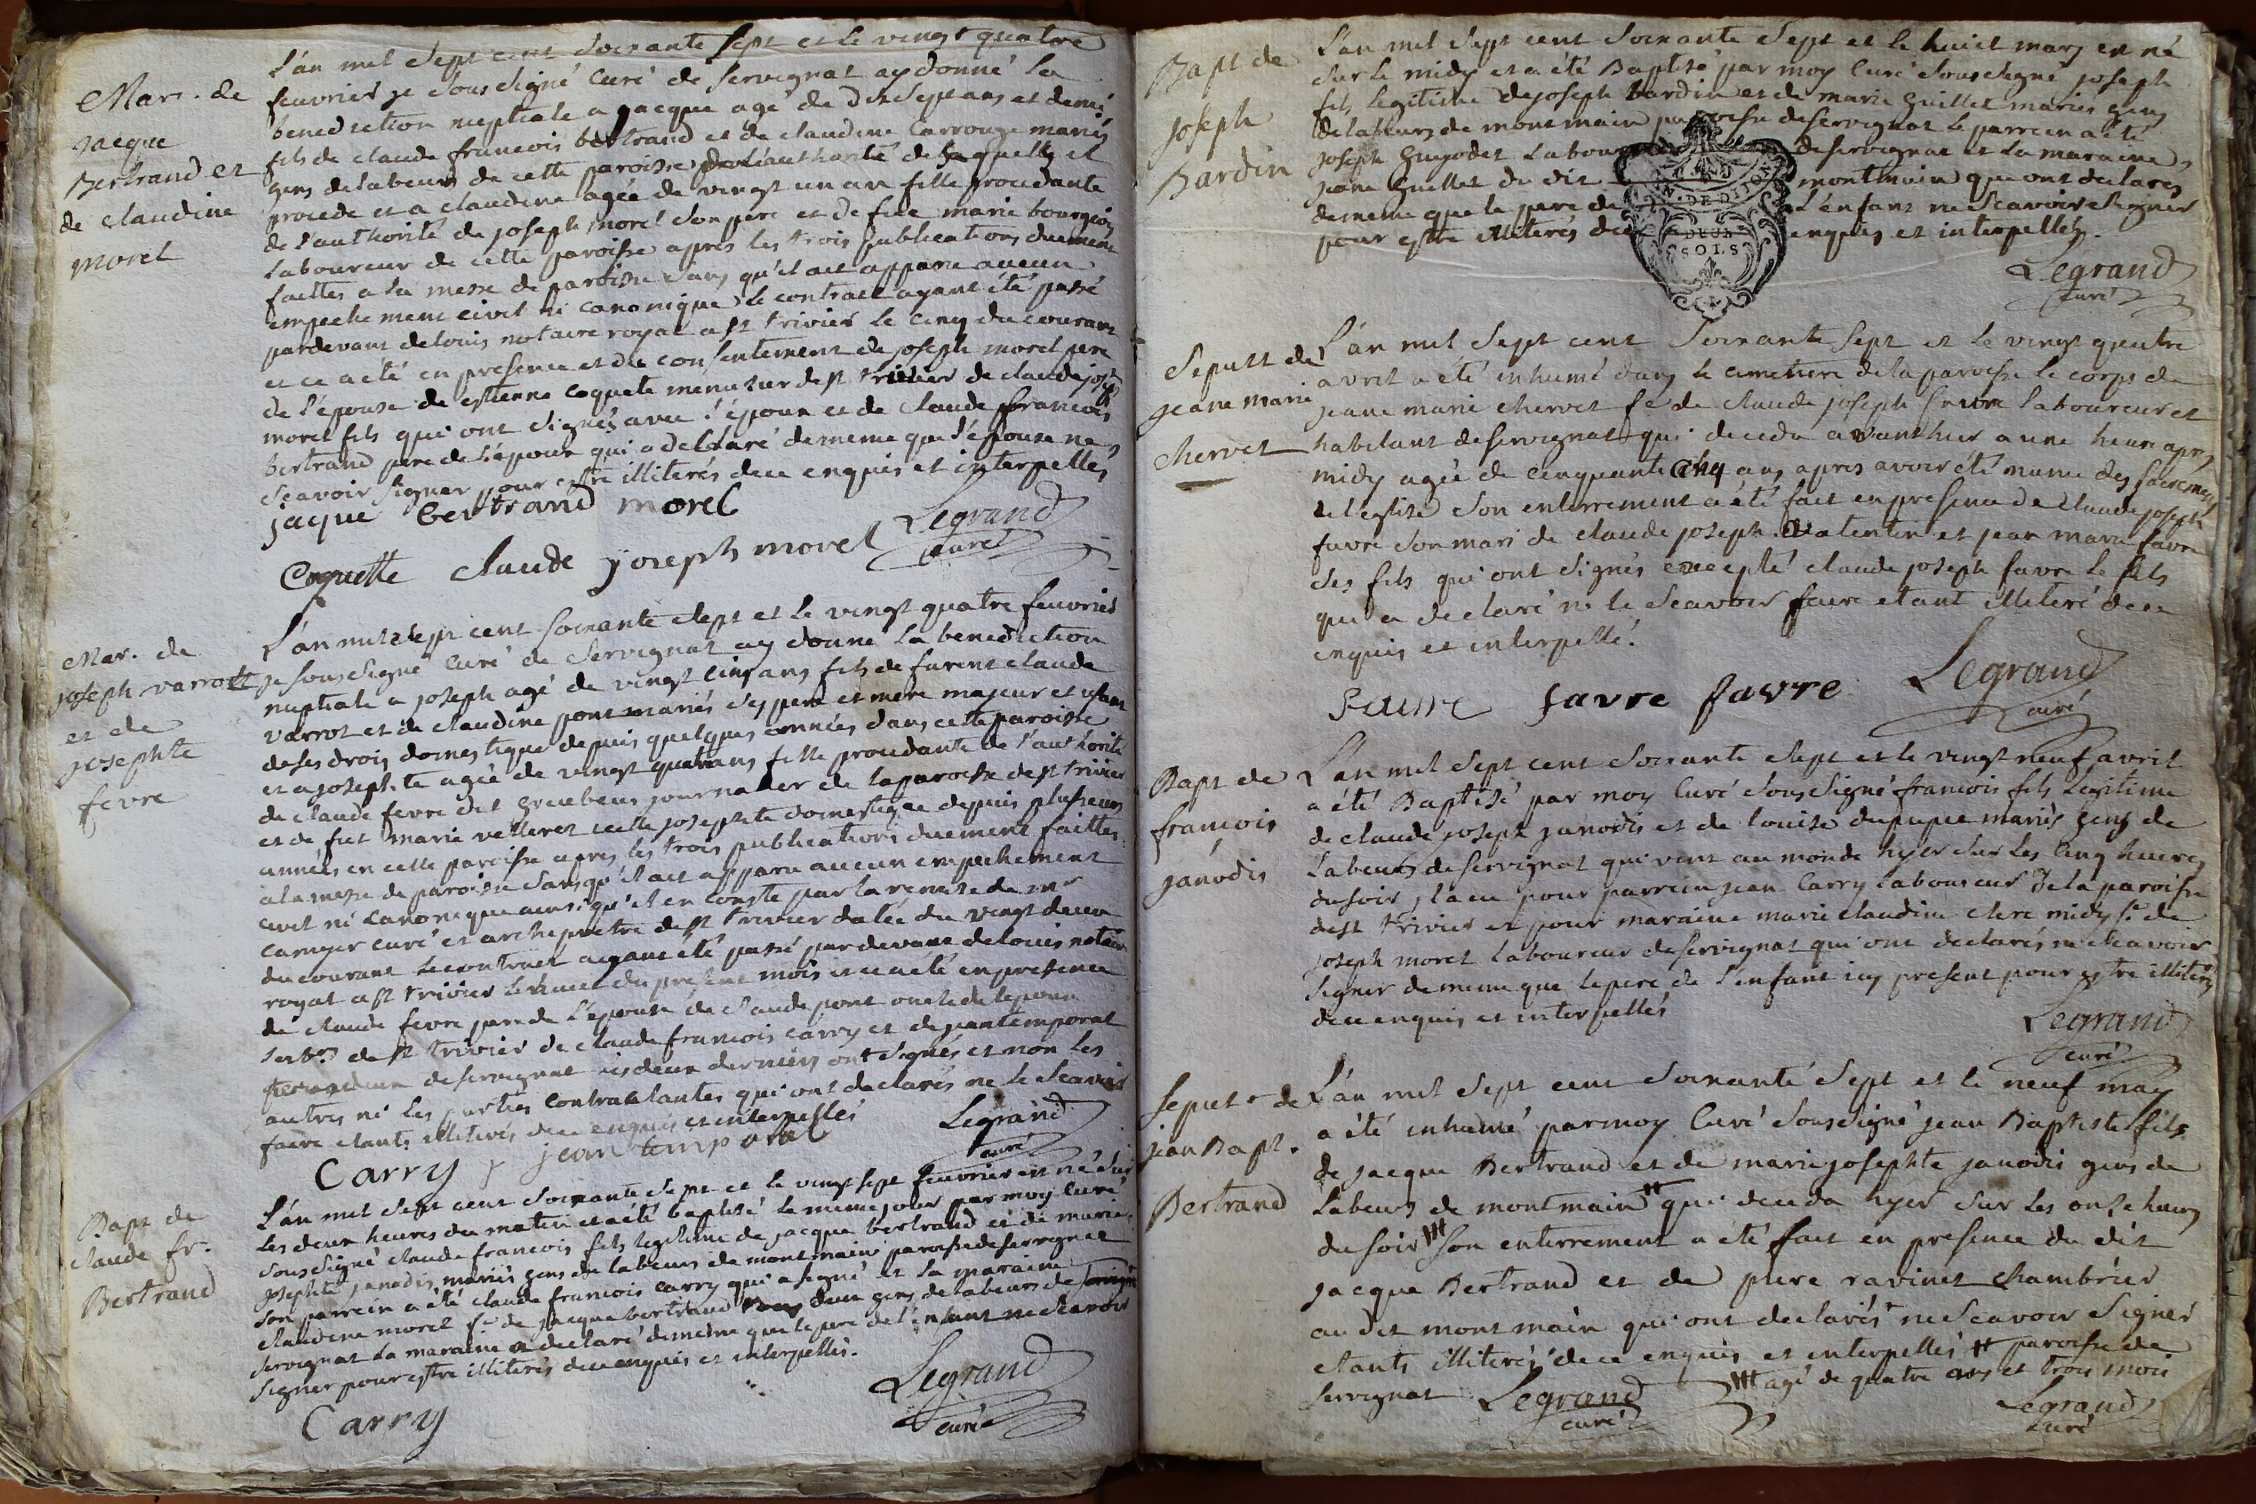 Mar. de
jacque
Bertrand et
de claudine
morel
L'an mil Sept cent Soixante Sept et le vingt quatre
feuvrier je Sous Signé Curé de Servignat ay donné la
benediction nuptiale a jacque agé de dix Sept ans et demi
fils de claude francois bertrand et de claudine Carrouge mariés
gens de labeur de cette paroisse de l'authorité desquells il
procede et a claudine agée de vingt un an fille procedante
de l'authorité de joseph morel Son pere et de fue marie bourgeois
Laboureur de cette paroisse apres les trois publications duement
faittes a la messe de paroisse Sans qu'il ait apparu aucun
empechement civil ni canonique le contract ayant été passé
pardevant delouis notaire royal a st trivier le cinq du courant
et ce a été en presence et du consentement de joseph morel pere
de l'épouse de estienne coquete menusier de st trivier de claude joseph
morel fils qui ont Signés avec l'époux et de claude francois
bertrand pere de l'époux qui a declaré de meme que l'épouse ne
Scavoir Signer pour estre illiterés de ce enquis et interpellés
jaque bertrand morel
Legrand
curé
Coquette claude joseph morel
Mar. de
joseph varrott
et de
josephte
fevre
L'an mil Sept cent Soixante Sept et le vingt quatre feuvrier
je Sous Signé Curé de Servignat ay donné la benediction
nuptiale a joseph agé de vingt cinq ans fils de furent claude
varrot et de claudine pont mariés Ses pere et mere majeur et usant
de Ses drois domestique depuis quelques années dans cette paroisse
et a josephte agée de vingt quatr ans fille procedante de l'authorité
de claude fevre dit journalier de la paroisse de st trivier
et de fue marie velleret cette josephte domestique depuis plusieurs
années en cette paroisse apres les trois publications duement faittes
a la messe de paroisse Sans qu'il ait apparu aucun empechement
civil ni canonique ainsi qu'il en conste par la remise de mr
curé et archipretre de st trivier datée du vingt deux
du courant le contract ayant été passé pardevant delouis notaire
royal a st trivier le du present mois et ce a été en presence
de claude fevre pere de l'épouse de claude pont oncle de l'époux
de st trivier de claude francois carry et de jean temporal
de servignat ces deux derniers ont Signés et non les
autres ni les parties contractantes qui ont declarés ne le Scavoir
faire etants illiterés de ce enquis et interpellés
Carry jean temporal
Legrand
curé
Bapt de
claude fr.
Bertrand
L'an mil Sept cent Soixante Sept et le vingt Sept feuvrier est né Sur
les deux heures du matin et a été baptisé le meme jour par moy Curé
Soussigné claude francois fils legitime de jacque bertrand et de marie
josephte janodis mariés gens de labeurs de montmain paroisse de servignat
Son parrein a été claude francois carry qui a Signé et la maraine
claudine morel fe de jacque bertrand tous deux gens de labeurs de servignat
servignat la maraine a declaré de meme que le pere de l'enfant ne Scavoir
Signer pour estre illiterés de ce enquis et interpellés.
Legrand
curé
Carry
Bapt de
joseph
Bardin
L'an mil Sept cent Soixante Sept et le huict mars est né
Sur le midy et a été Baptisé par moy Curé Sous Signé joseph
fils legitime de joseph bardin et de marie guillet mariés gens
de labeurs de montmain paroisse de servignat le parrein a été
joseph guyodet laboureur de servignat et la maraine
jeane guillet du dit montmain qui ont declarés
de meme que le pere de L'enfant ne Scavoir Signer
pour estre illiterés de ce enquis et interpellés.
DEUX
SOLS
Legrand
curé
Sepult de
jeane marie
chervet
L'an mil Sept cent Soixante Sept et le vingt quatre
avril a été inhumé dans le cimetiere de la paroisse le corps de
jeane marie chervet fe de claude joseph favre laboureur et
habitant de servignat qui deceda avanthier a une heure apres
midy agée de cinquante cinq ans apres avoir été munie des Sacremens
de l'eglise Son enterrement a été fait en presence de claude joseph
favre Son mari de claude joseph valentin et jean marie favre
Ses fils qui ont Signés excepté claude joseph favre le fils
qui a declaré ne le Scavoir faire etant illiteré de ce
enquis et interpellé.
favre favre favre
Legrand
curé
Bapt de
francois
janodis
L'an mil Sept cent Soixante Sept et le vingt neuf avril
a été Baptisé par moy Curé Sous Signé francois fils Legitime
de claude joseph janodis et de louise dupupet mariés gens de
labeurs de servignat qui vint au monde hyer Sur Les Cinq heures
du soir, il a eu pour parrein jean Carry laboureur de la paroisse
de st trivier et pour maraine marie claudine clerc midy fe de
joseph morel laboureur de servignat qui ont declarés ne Scavoir
Signer de meme que le pere de l'enfant icy present pour estre illiterés
de ce enquis et interpellés
Legrand
curé
Sepult de
jean Bapt.
Bertrand
L'an mil Sept cent Soixante Sept et le neuf may
a été inhumé par moy Curé Sous Signé jean Baptiste fils
de jacque Bertrand et de marie josephte janodis gens de
labeurs de montmain # qui deceda hyer Sur les onze heures
du soir ## Son enterrement a été fait en presence du dit
jacque Bertrand et de piere ravinet chambrier
au dit montmain qui ont declarés ne Scavoir Signer
etants illiterés de ce enquis et interpellés # paroisse de
servignat ## agé de quatre ans et trois mois
Legrand
curé
Legrand
Curé